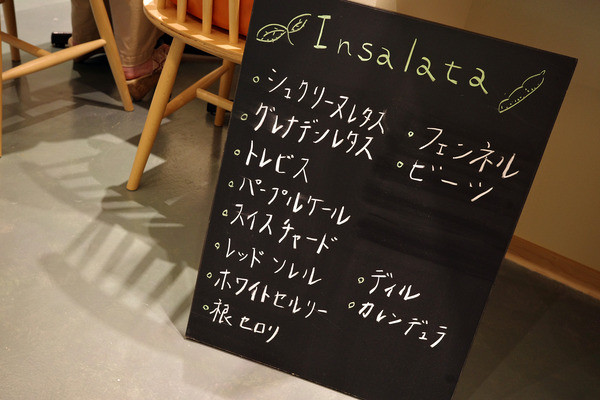 Insalata
シュクリーヌレタス
グレナデンレタス
トレビス
パープルケール
スイスチャード
レッドソレル
ホワイトセルリー
根セロリ
フェンネル
ビーツ
ディル
カレンデュラ